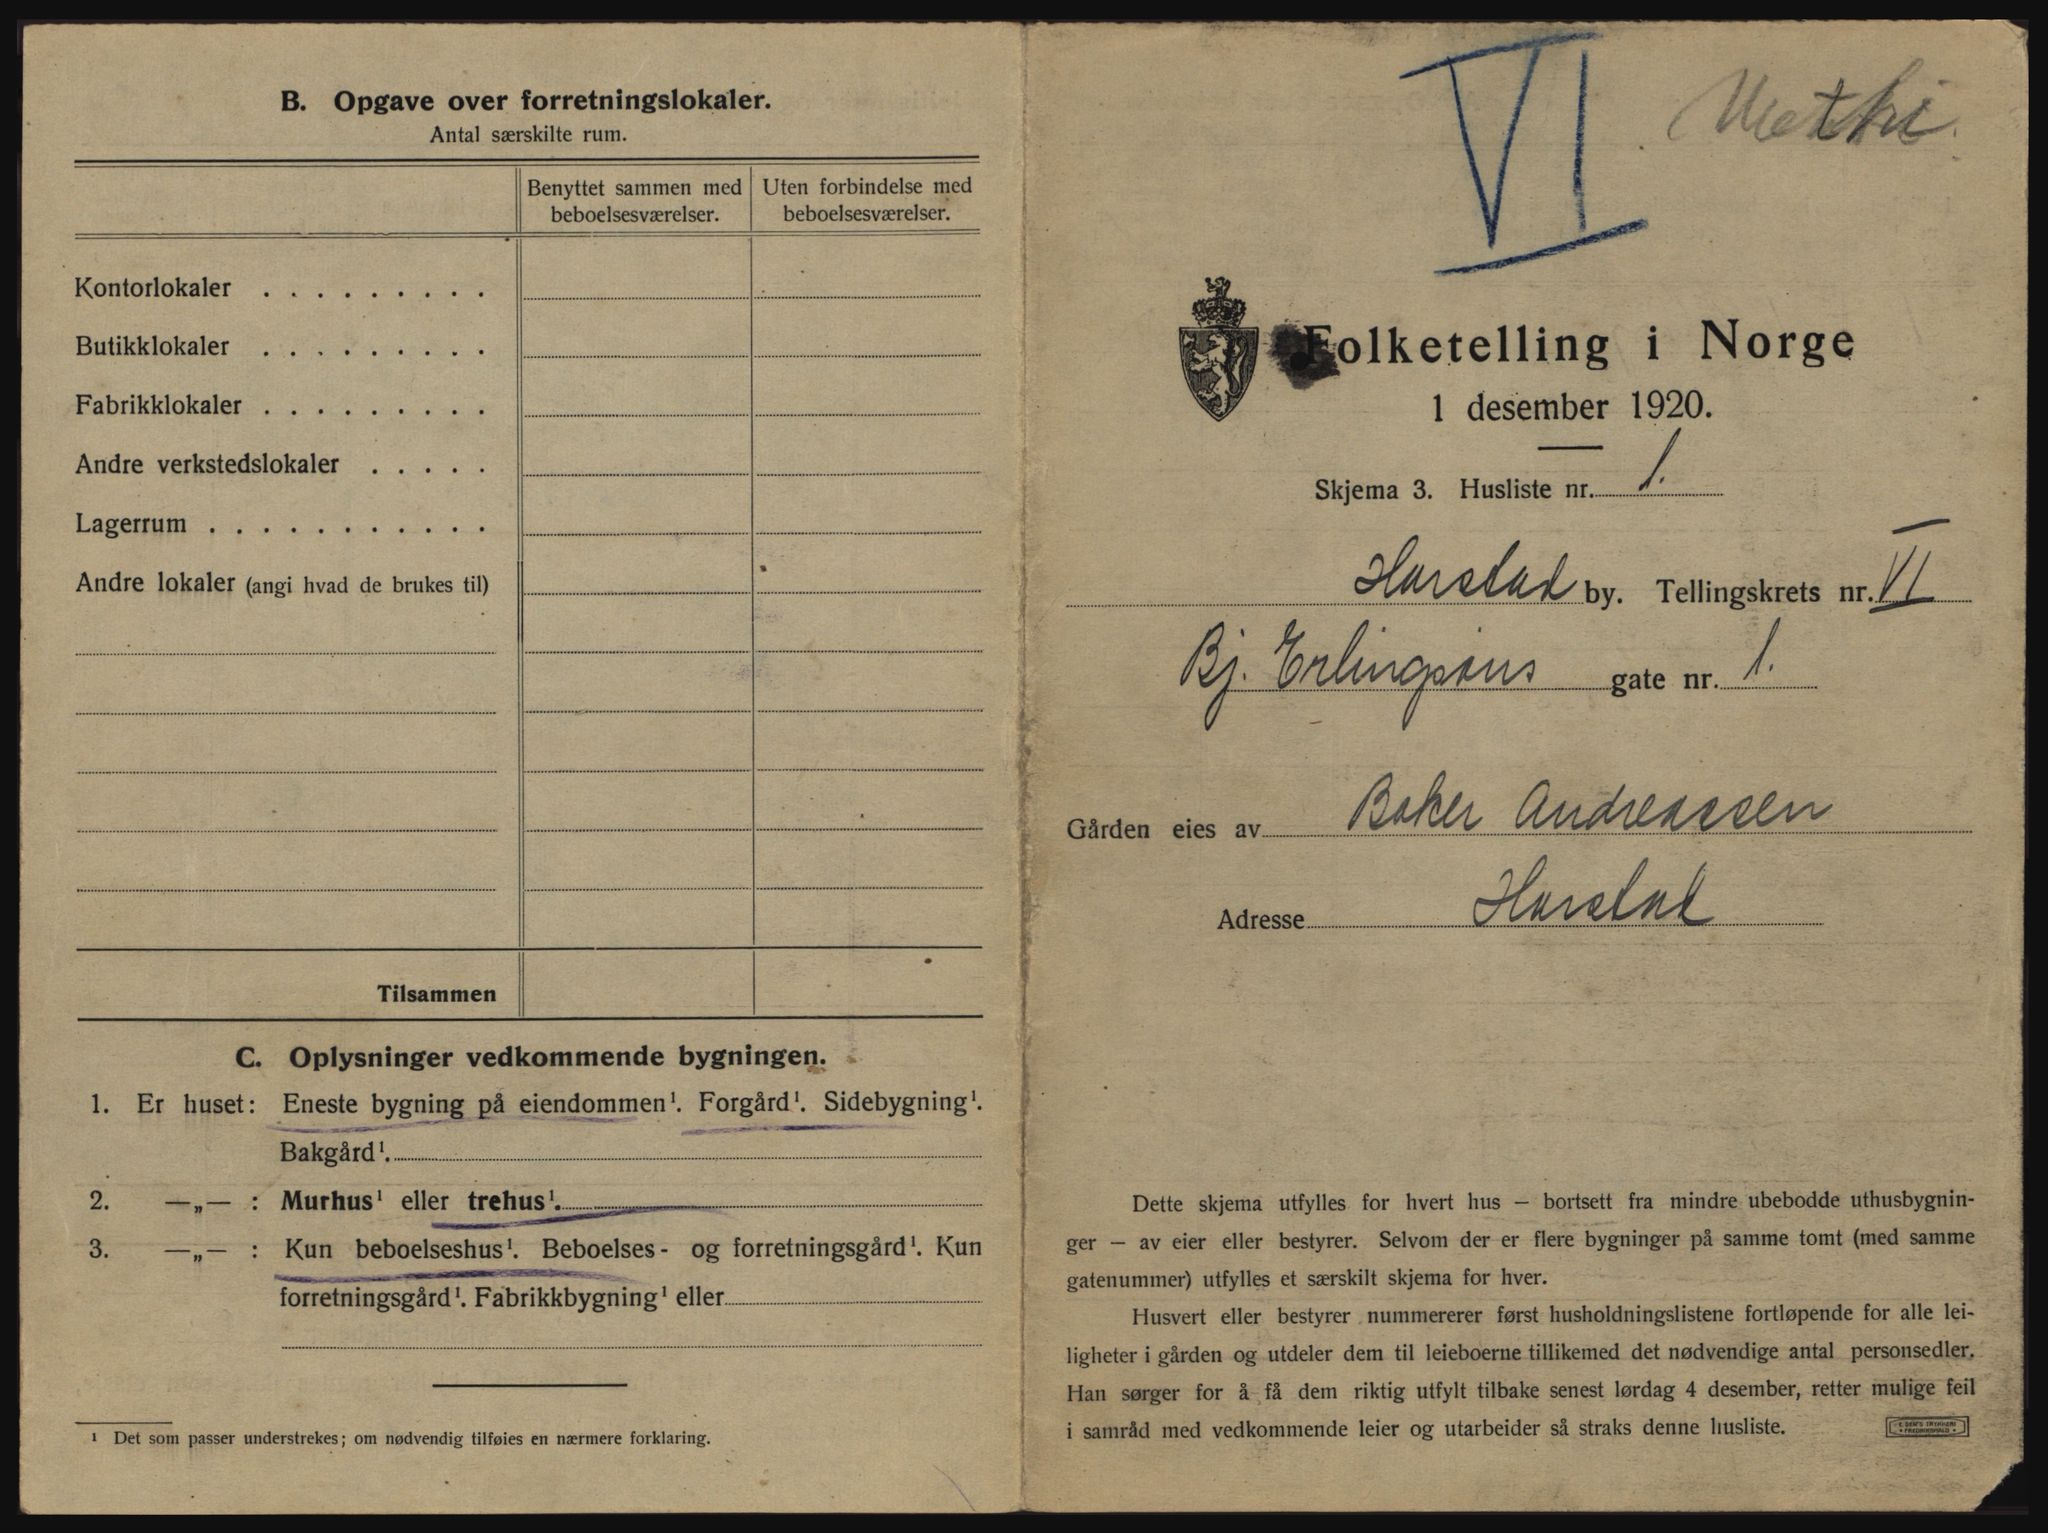 B. Opgave over forretningslokaler.
Antal særskilte rum.
Benyttet sammen med beboelsesværelser.
Uten forbindelse med beboelsesværelser.
Kontorlokaler . . . . . . . . .
Butikklokaler . . . . . . . . .
Fabrikklokaler . . . . . . . . .
Andre verkstedslokaler . . . . .
Lagerrum . . . . . . . . . . .
Andre lokaler (angi hvad de brukes til)
Tilsammen
C. Oplysninger vedkommende bygningen.
1. Er huset: Eneste bygning på eiendommen¹. Forgård¹. Sidebygning¹.
Bakgård¹.
2. —„— : Murhus¹ eller trehus¹.
3. —„— : Kun beboelseshus¹. Beboelses- og forretningsgård¹. Kun
forretningsgård¹. Fabrikkbygning¹ eller
¹ Det som passer understrekes; om nødvendig tilføies en nærmere forklaring.
VI
Folketelling i Norge
1 desember 1920.
Skjema 3. Husliste nr. 1.
Harstad by. Tellingskrets nr. VI
Bj. Erlingsøns gate nr. 1.
Gården eies av Baker Andreassen
Adresse Harstad
Dette skjema utfylles for hvert hus — bortsett fra mindre ubebodde uthusbygnin-
ger — av eier eller bestyrer. Selvom der er flere bygninger på samme tomt (med samme
gatenummer) utfylles et særskilt skjema for hver.
Husvert eller bestyrer nummererer først husholdningslistene fortløpende for alle lei-
ligheter i gården og utdeler dem til leieboerne tillikemed det nødvendige antal personsedler.
Han sørger for å få dem riktig utfylt tilbake senest lørdag 4 desember, retter mulige feil
i samråd med vedkommende leier og utarbeider så straks denne husliste.